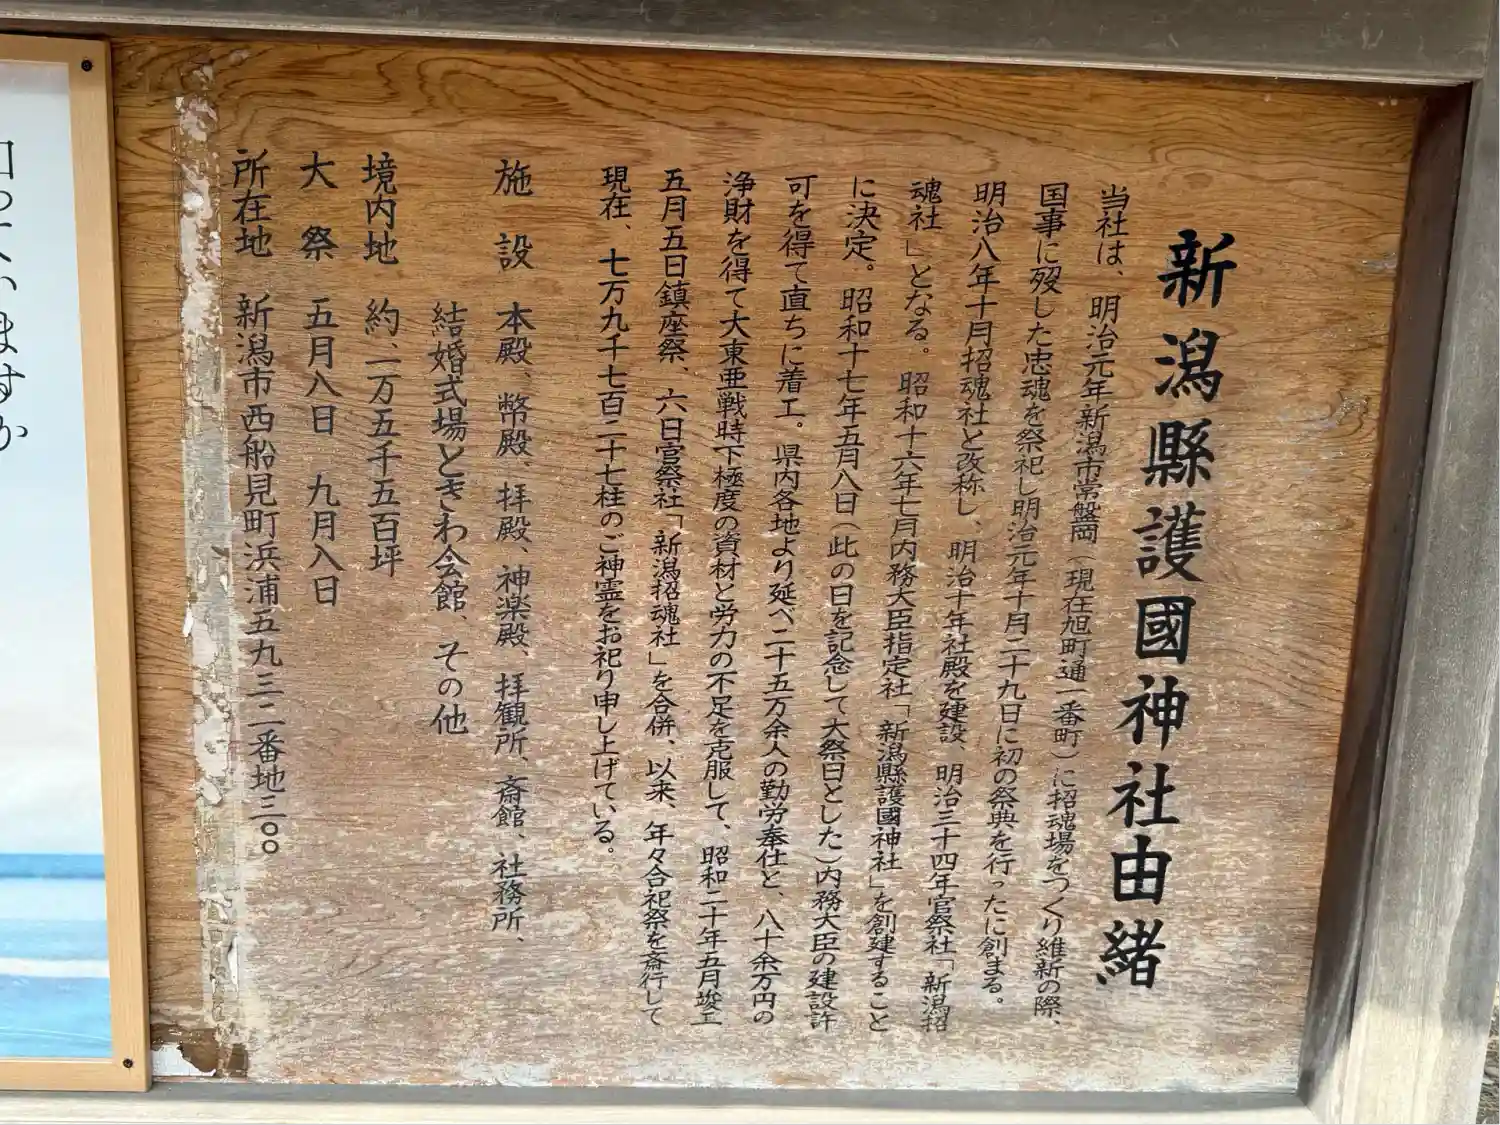 新潟縣護國神社由緒
当社は、明治元年新潟市常盤岡（現在旭町通一番町）に招魂場をつくり維新の際、
国事に歿した忠魂を祭祀し明治元年十月二十九日に初の祭典を行ったに創まる。
明治八年十月招魂社と改称し、明治十年社殿を建設、明治三十四年官祭社「新潟招
魂社」となる。昭和十六年七月内務大臣指定社「新潟縣護國神社」を創建すること
に決定。昭和十七年五月八日（此の日を記念して大祭日とした）内務大臣の建設許
可を得て直ちに着工。県内各地より延べ二十五万余人の勤労奉仕と、八十余万円の
浄財を得て大東亜戦時下極度の資材と労力の不足を克服して、昭和二十年五月竣工
五月五日鎮座祭、六日官祭社「新潟招魂社」を合併、以来、年々合祀祭を斎行して
現在、七万九千七百二十七柱のご神霊をお祀り申し上げている。
施設 本殿、幣殿、拝殿、神楽殿、拝観所、斎館、社務所、
結婚式場ときわ会館、その他
境内地 約、一万五千五百坪
大祭 五月八日 九月八日
所在地 新潟市西船見町浜浦五九三二番地三〇〇
っていますか